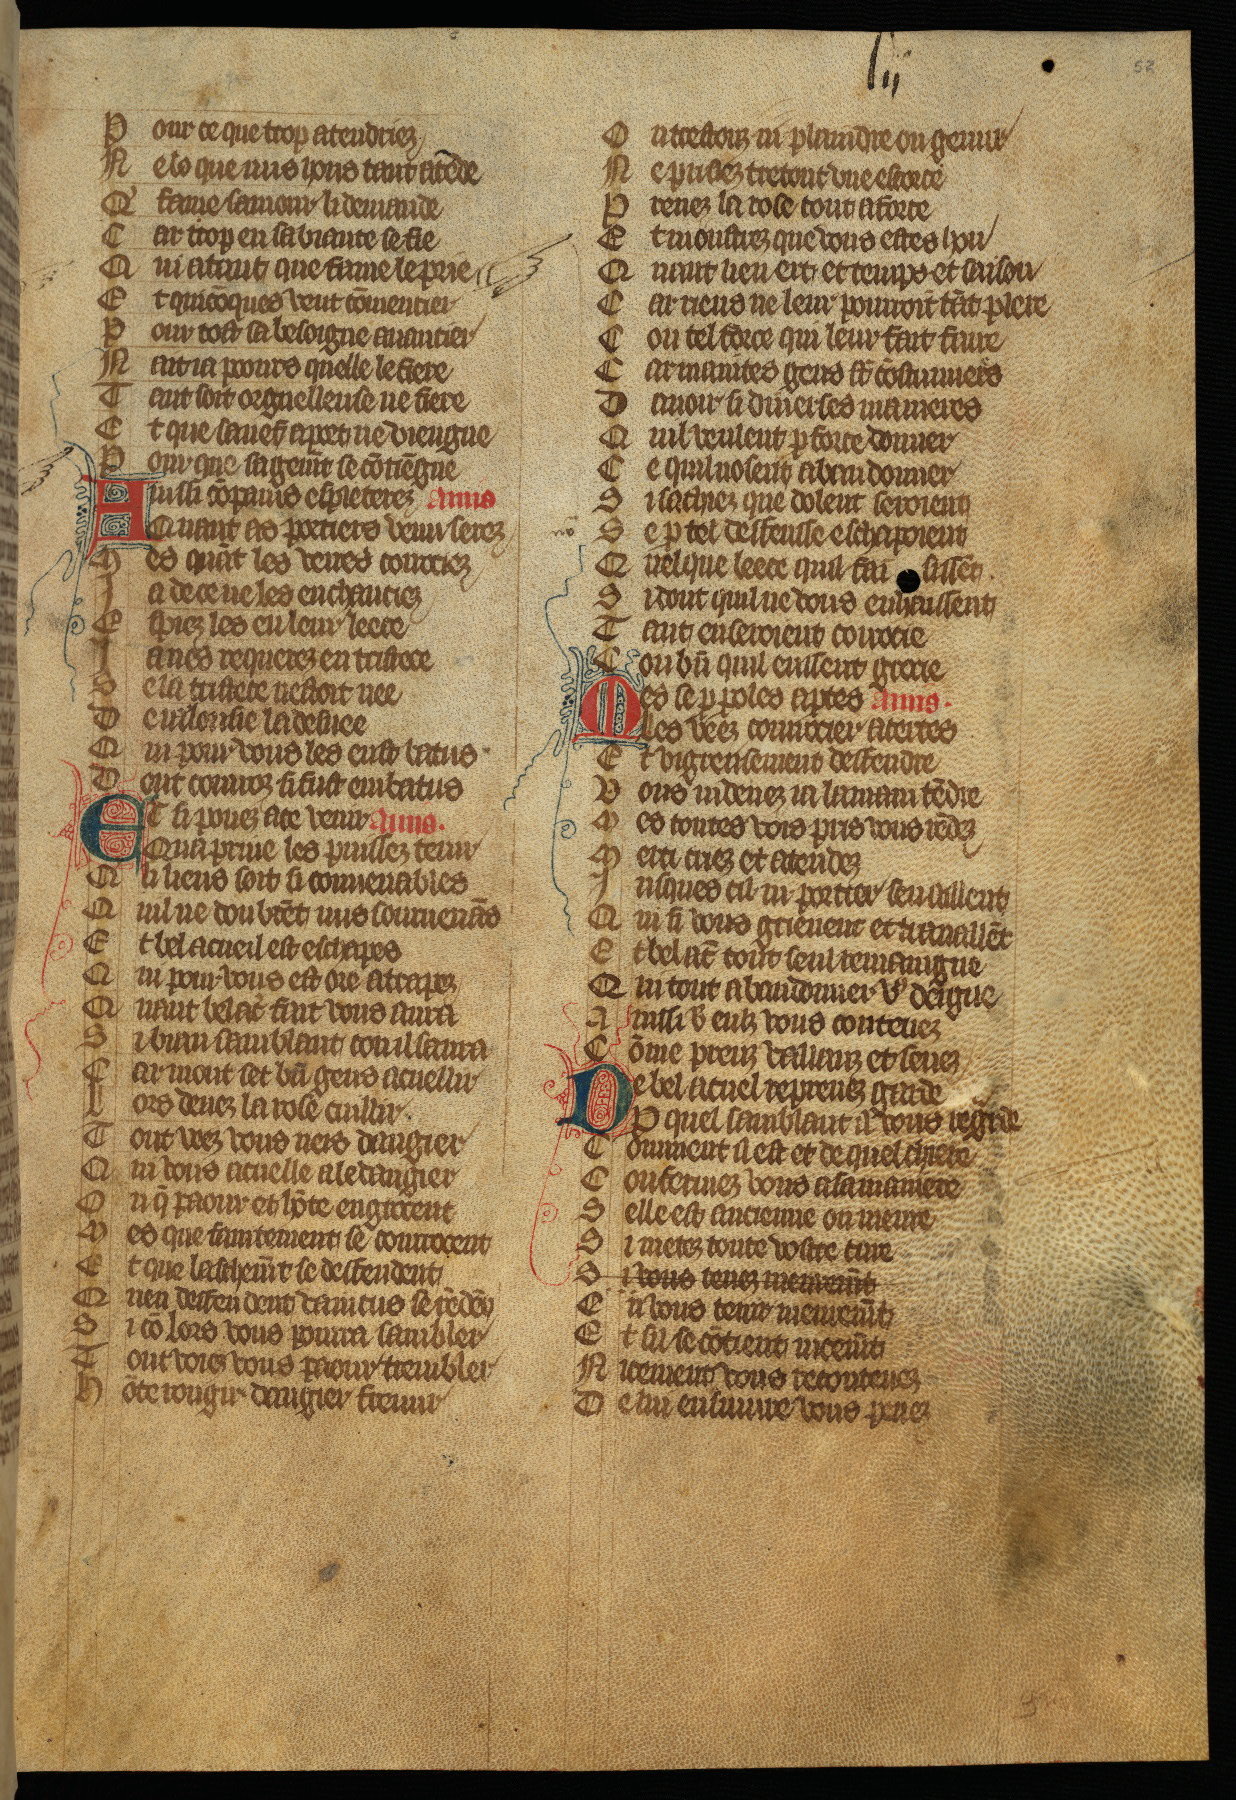 lij
52
P our ce que trop atendriez
N e lo que nus hons tant atēde
Q' fame samour li demande
C ar trop en sa biaute se fie
Q ui atant que fame le prie
E t quicōques veut cōmencier
P our tost sa besoigne auancier
N ait ia poours quelle le fiere
T ant soit orguelleuse ne fiere
E t que sa nef a port ne viengne
P our que sagemt se cōtiēgne
A Inssi cōpains esploiterez Amis
Quant as portiers venu serez
M es quāt les verrez courciez
J a de ce ne les enchauciez
E spiez les en leur leece
J a nes requerez en tristece
S e la tristece nestoit nee
D e ialousie la desuee
Q ui pour vous les eust batus
D ont courroz si fust embatus
E T si pouez a ce venir Amis.
Qua priue les puissez tenir
Q li liens soit si conuenables
Q uil ne doubtēt nus souruenās
E t bel acueil est eschapes
Q ui pour vous est ore atrapez
Q uant bel ac̄ fait vous aura
S i biau samblant com il saura
C ar mout set bn̄ gens acuellir
L ors deuez la rose cuillir.
T out veez vous neis dangier
Q ui vous acuelle a ledangier
O u q̄ paour et hōte engrocent
M es que faintement se courrocent
E t que laschemt se deffendent
Q uen deffendent vaincus se rēdēt
S i cō lors vous pourra sambler
T out voiez vous paour trembler
H ōte rougir dangier fremir
O u trestouz iii plaindre ou gemir
N e prisiez trestout vne escorce
P renez la rose tout a force
E t moustrez que vous estes hon
Q uant lieu ert et temps et saison
C ar riens ne leur pourroit tāt plere
C on tel force qui leur fait faire
C ar maintes gens st̄ coustumiers
D auoir si diuerses manieres
Q uil veulent p force donner
C e quil nosent abandonner
S i sachiez que dolent seroient
S e p tel deffensse eschapoient
Q uel que leece quil fai sissēt.
S i dout quil ne vous enhaissent
T ant en seroient courocie
C om bn̄ quil eussent grocie
M es se p poles aptes Amis.
Les veez courroucier acertes
E t vigreusement deffendre
V ous ni deuez ia la main tēdre
M es toutes vois pris vous rēdez
M erci criez et atendez
J usques cil iii portier sen aillent
Q ui si vous grieuent et trauaillēt
E t bel ac̄ touz seul remaingne
Q ui tout abandonner v' deingne
A inssi v̄ eulz vous contenez
C ōme preuz vaillanz et senez
D e bel acuel reprenez garde
P quel samblant il vous regarde
C omment il est et de quel chiere
C onfermez vous a sa maniere
S elle est ancienne ou meure
S i metez toute vostre cure
S i vous tenez meuremt
E n vous tenir meuremt
E t sil se cōtient nicemt
N icement vous recontenez
D e lui ensuiure vous penez